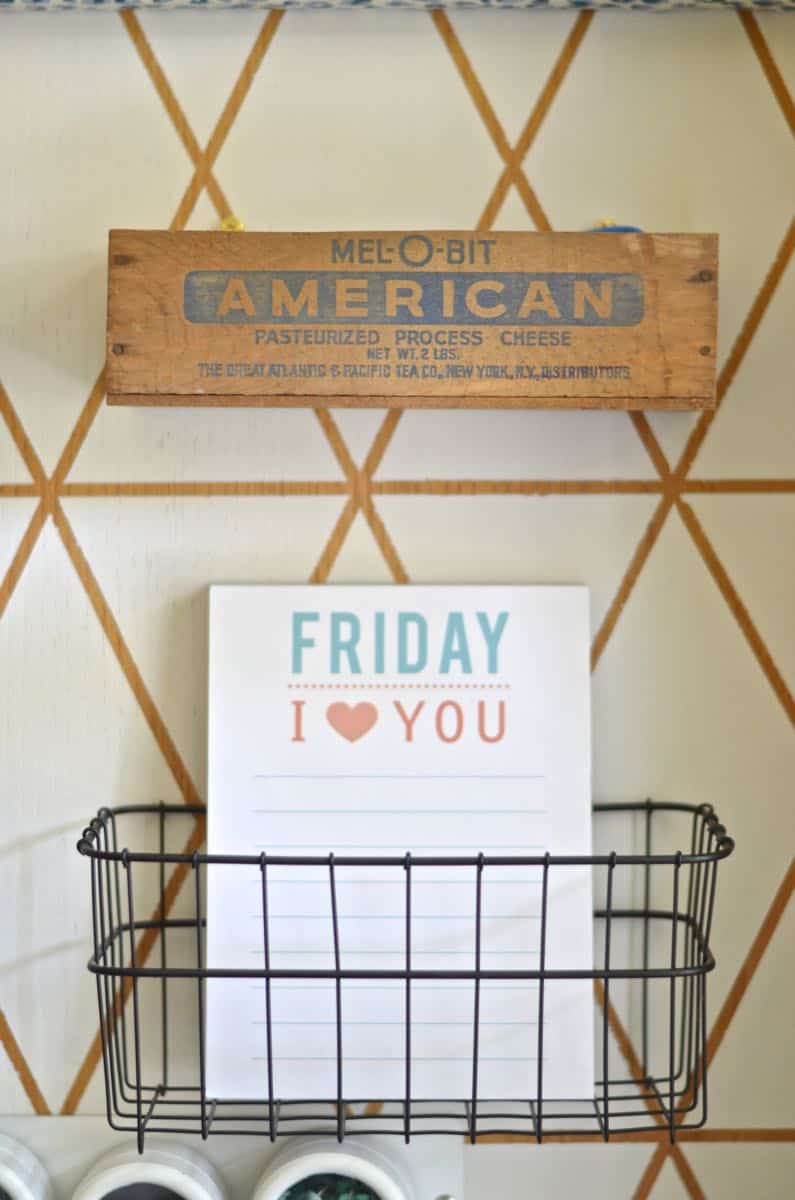 MEL-O-BIT
AMERICAN
PASTEURIZED PROCESS CHEESE
NET WT. 2 LBS.
THE GREAT ATLANTIC & PACIFIC TEA CO., NEW YORK, N.Y., DISTRIBUTORS
FRIDAY
I ♥ YOU